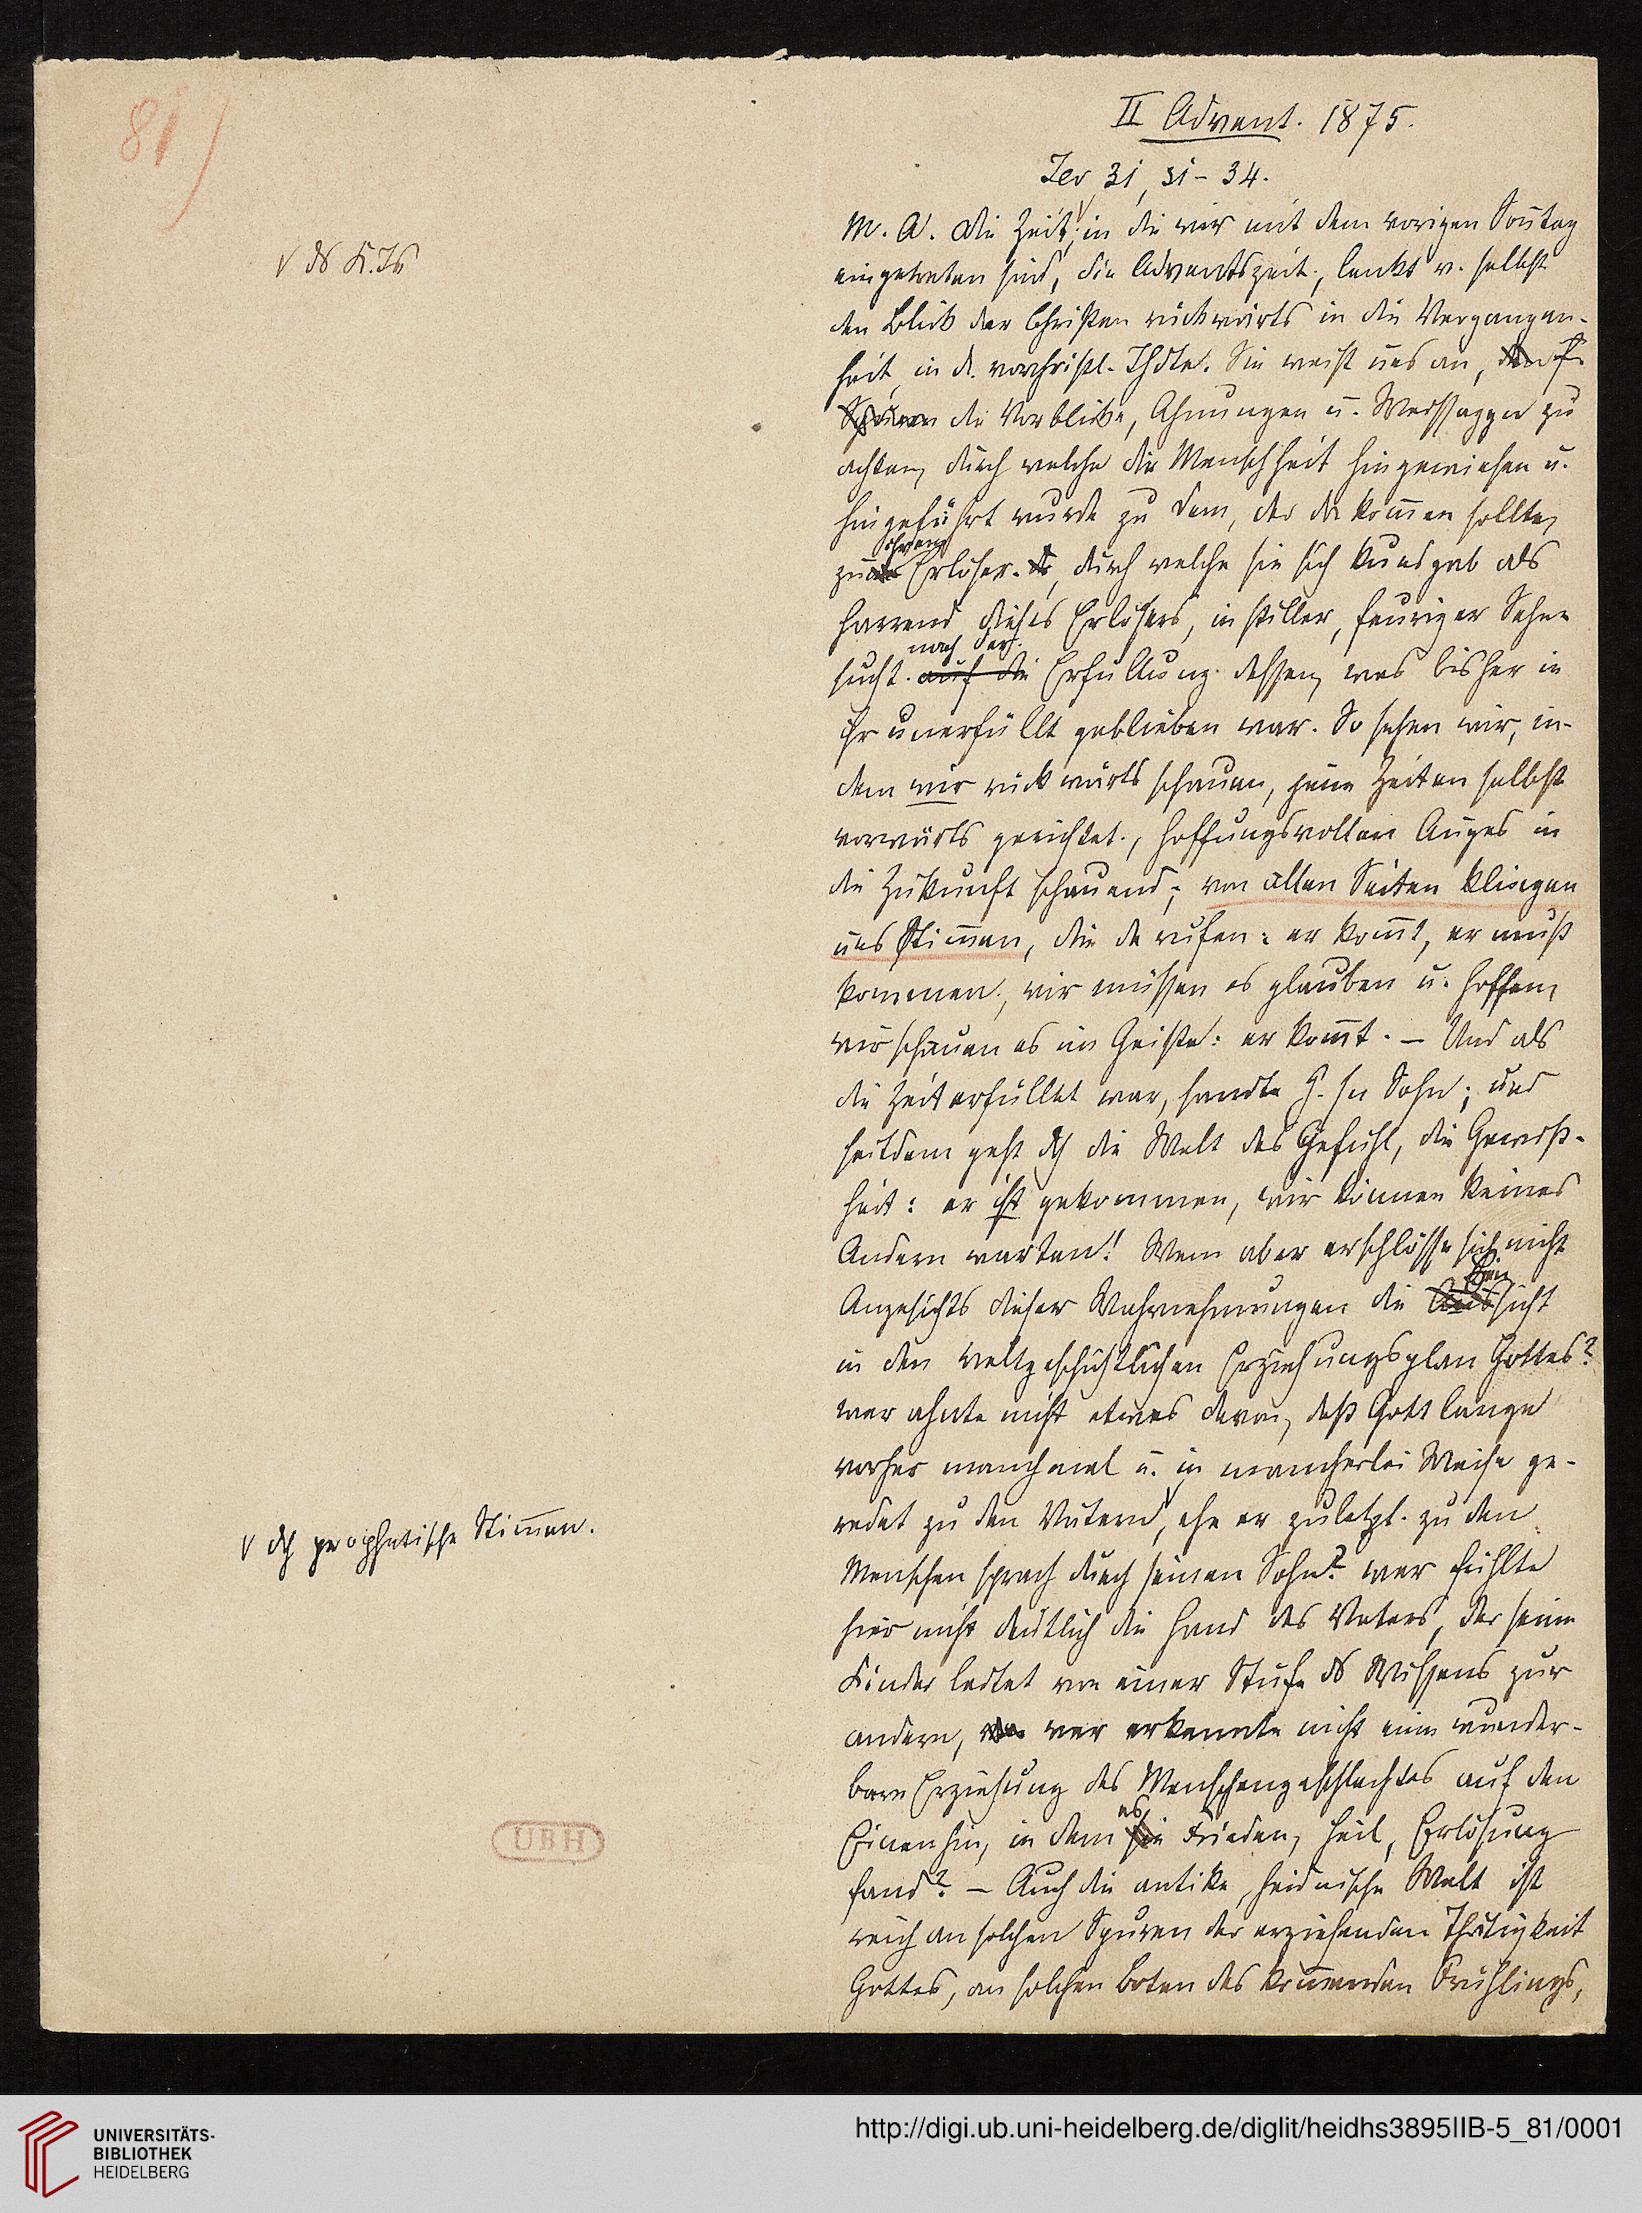 81)
II Advent. 1875.
Jer 31, 31-34.
M. A. Die Zeit, in die wir mit dem vorigen Son̄tag
v ds K.Js
eingetreten sind, die Adventszeit, lenkt v. selbst
den Blick der Christen rückwärts in die Vergangen-
heit, in d. vorchristl. Jhdte. Sie weist uns an,
Spuren die Vorblicke, Ahnungen u. Weissaggen zu
achten, durch welche die Menschheit hingewiesen u.
hingeführt wurde zu dem, der da kom̄en sollte,
zum Erlöser, durch welche sie sich kundgab als
harrend dieses Erlösers, in stiller, feuriger Sehn-
nach der
sucht auf die Erfüllung dessen, was bisher in
ihr unerfüllt geblieben war. So sehen wir, in-
dem wir rückwärts schauen, jene Zeiten selbst
vorwärts gerichtet, hoffnungsvollen Auges in
die Zukunft schauend; von allen Seiten klingen
uns Stim̄en, die da rufen: er kom̄t, er muß
kommen, wir müssen es glauben u. hoffen,
wir schauen es im Geiste: er kom̄t. – Und als
die Zeit erfüllet war, sandte G. sn Sohn; und
seitdem geht dch die Welt das Gefühl, die Gewiß-
heit: er ist gekommen, wir können keines
Andern warten! Wem aber erschlösse sich nicht
Ein
Angesichts dieser Wahrnehmungen die Aussicht
in den weltgeschichtlichen Erziehungsplan Gottes?
wer ahnte nicht etwas davon, daß Gott lange
vorher manchmal u. in mancherlei Weise ge-
redet zu den Vätern, ehe er zuletzt zu den
v dch prophetische Stim̄en.
Menschen sprach durch seinen Sohn? wer fühlte
hier nicht deutlich die Hand des Vaters, der seine
Kinder leitet von einer Stufe ds Wissens zur
andern, wer erkennte nicht eine wunder-
bare Erziehung des Menschengeschlechtes auf den
es
Einen hin, in dem sie Frieden, Heil, Erlösung
fand? – Auch die antike, heidnische Welt ist
reich an solchen Spuren der erziehenden Thätigkeit
Gottes, an solchen Boten des kom̄enden Frühlings,
UBH
UNIVERSITÄTS-
BIBLIOTHEK
HEIDELBERG
http://digi.ub.uni-heidelberg.de/diglit/heidhs3895IIB-5_81/0001